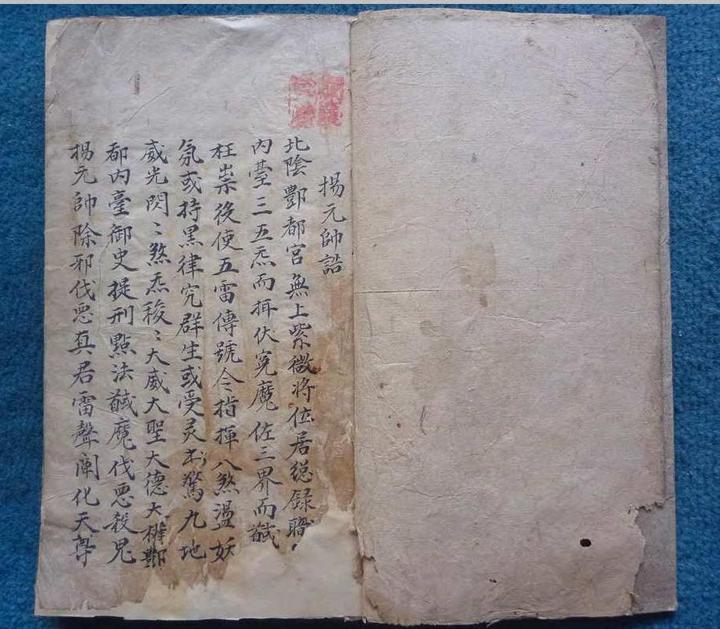 揚元帥誥
北陰酆都宮無上紫微將位居緫錄職
內臺三五炁而伏寃魔佐三界而馘
狂祟後使五雷傳號令指揮八煞盪妖
氛或持黑律究群生或受灵驚九地
威光閃〻煞炁稜〻大威大聖大德大權酆
都內臺御史提刑點法馘魔伐惡殺鬼
揚元帥除邪伐惡真君雷聲闡化天尊